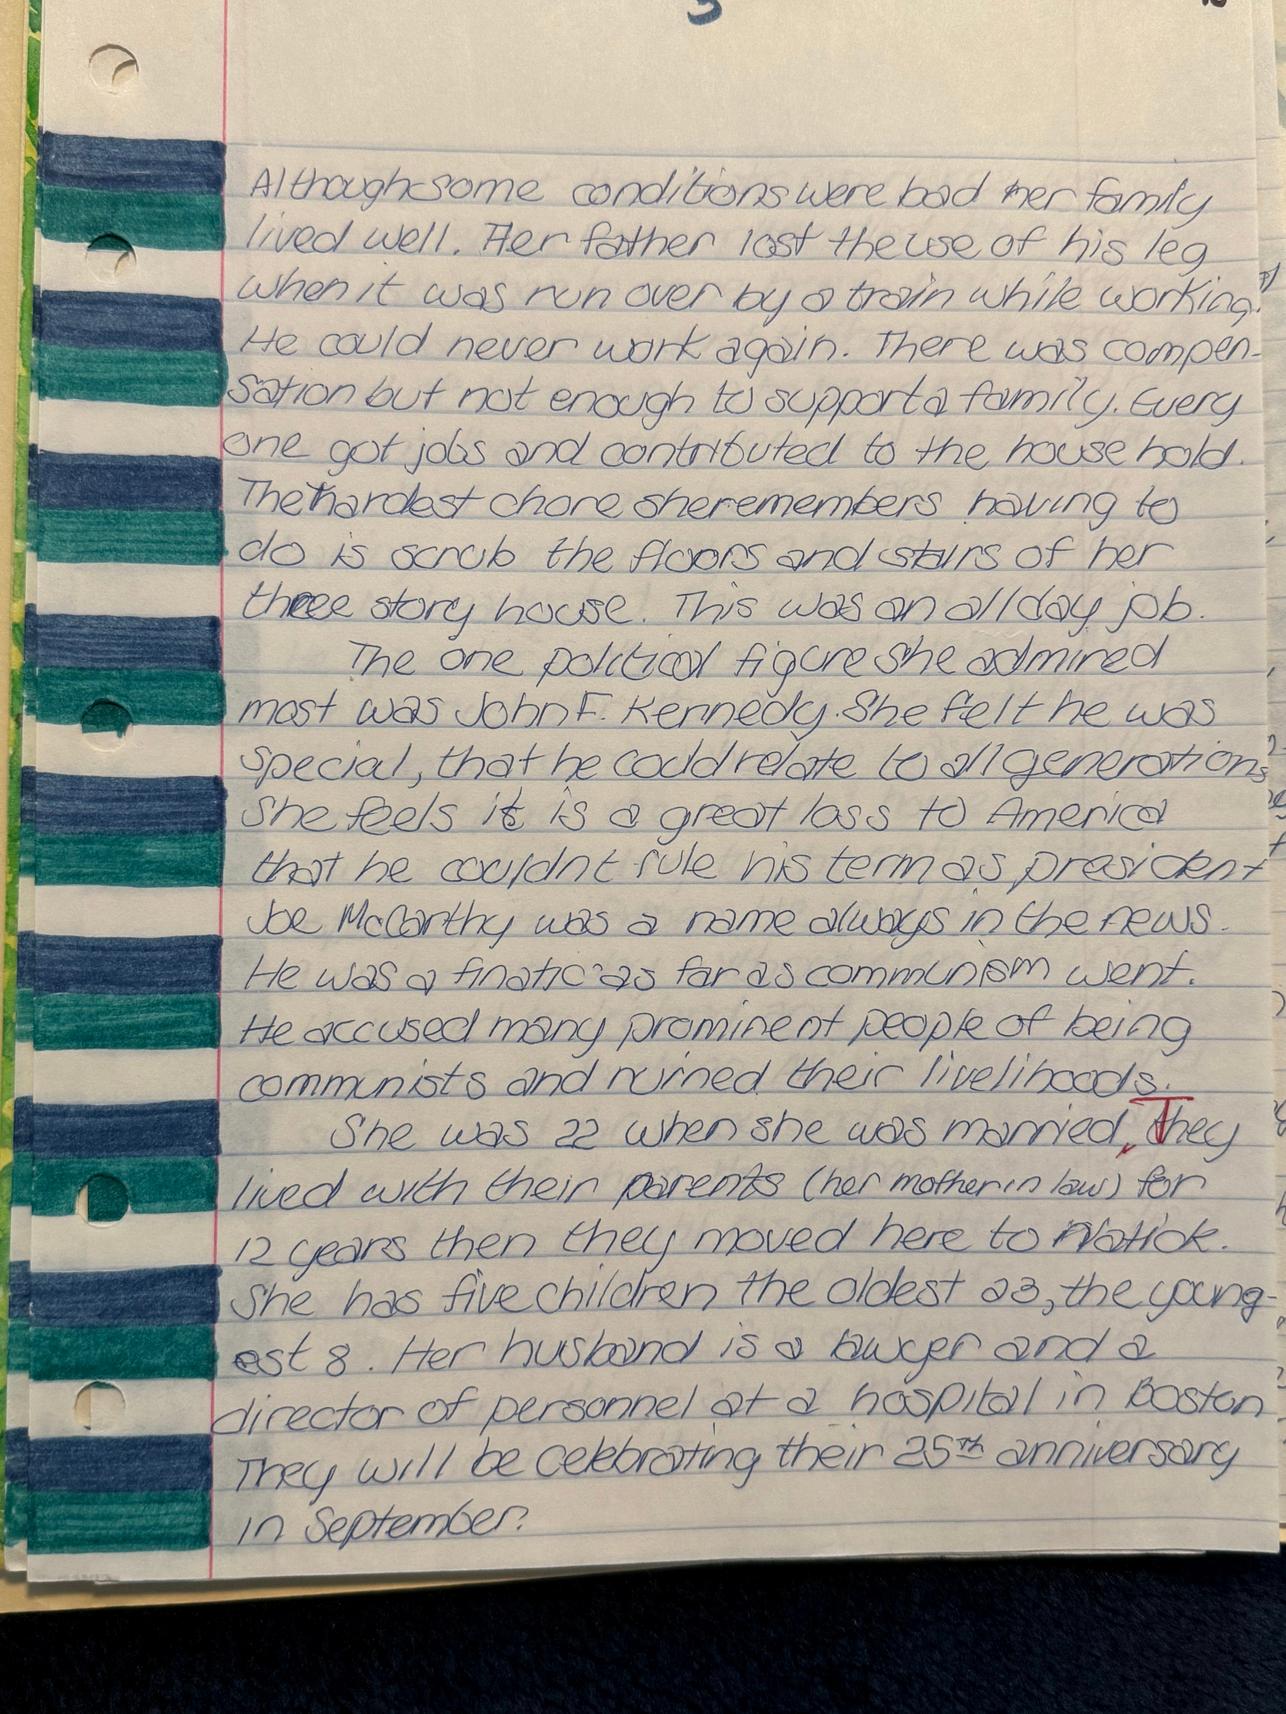 3
Although some conditions were bad her family
lived well. Her father lost the use of his leg
when it was run over by a train while working.
He could never work again. There was compen-
sation but not enough to support a family. Every
one got jobs and contributed to the house hold.
The hardest chore she remembers having to
do is scrub the floors and stairs of her
three story house. This was an all day job.
The one political figure she admired
most was John F. Kennedy. She felt he was
special, that he could relate to all generations
She feels it is a great loss to America
that he couldnt rule his term as president
Joe McCarthy was a name always in the news.
He was a finatic as far as communism went.
He accused many prominent people of being
communists and ruined their livelihoods.
She was 22 when she was married, They
lived with their parents (her mother in law) for
12 years then they moved here to Natick.
She has five children the oldest 23, the young-
est 8. Her husband is a lawyer and a
director of personnel at a hospital in Boston
They will be celebrating their 25th anniversary
in September.